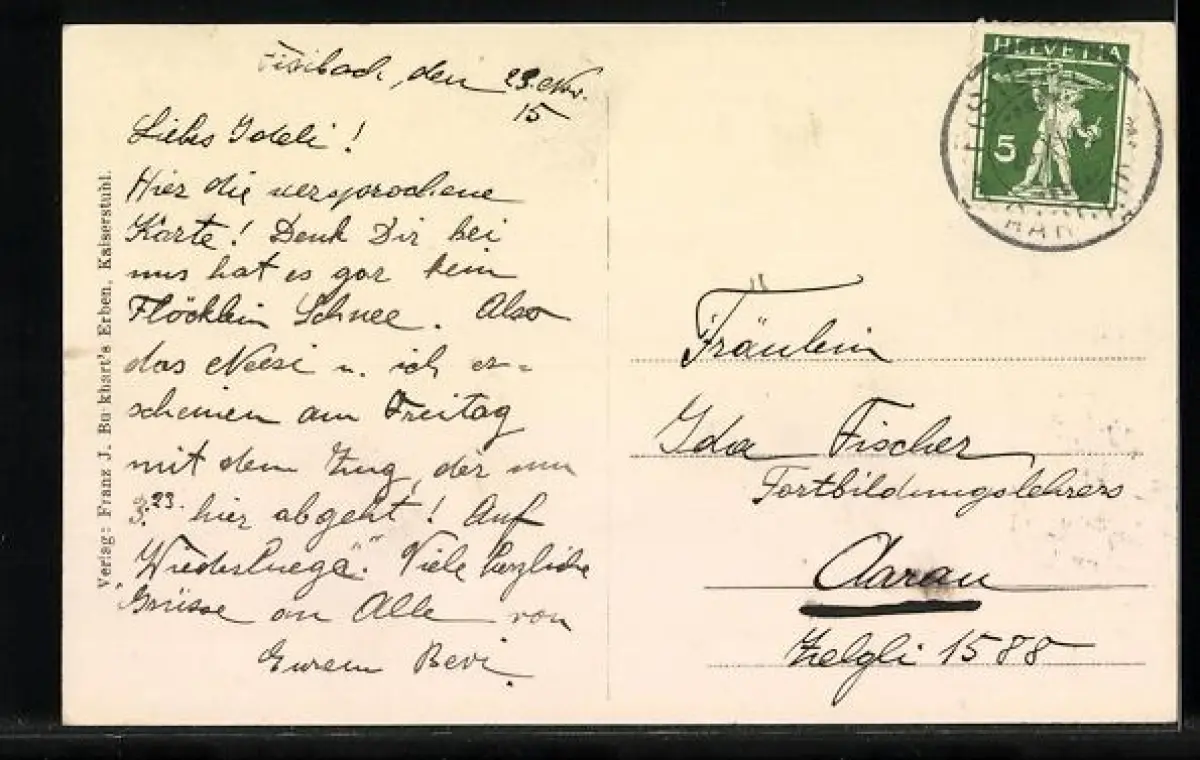 Fisibach, den 23. Nov.
15
Liebes Ideli!
Hier die versprochene
Karte! Denk Dir bei
uns hat es gar kein
Flöcklein Schnee. Also
das Neesi u. ich er=
scheinen am Freitag
mit dem Zug, der um
3.23. hier abgeht! Auf
"Wiederluega". Viele herzliche
Grüsse an Alle von
Eurem Bevi.
Verlag: Franz J. Burkhart's Erben, Kaiserstuhl.
HELVETIA
5
Fräulein
Ida Fischer
Fortbildungslehrers
Aarau
Zelgli 1588